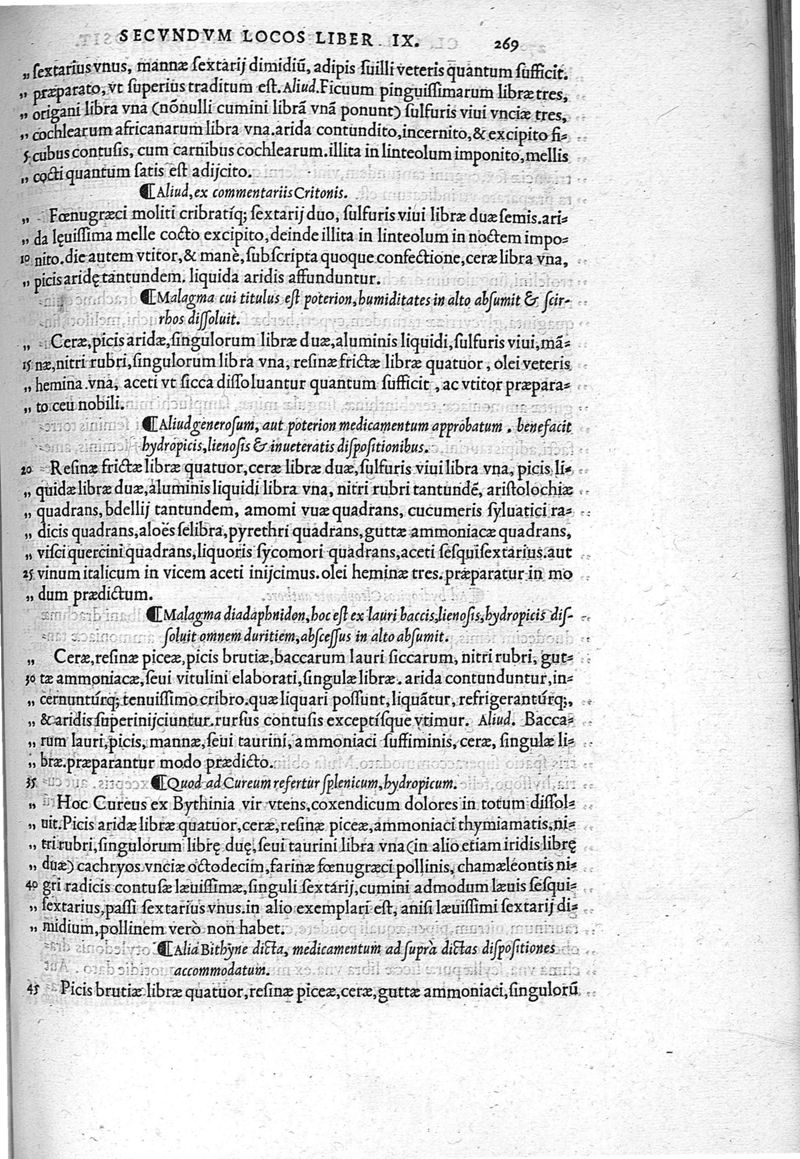 SECVNDVM LOCOS LIBER IX. 269
„ ſextarius vnus, mannæ ſextarij dimidiũ, adipis ſuilli veteris quantum ſufficit.
„ præparato, vt ſuperius traditum eſt. Aliud. Ficuum pinguiſſimarum libræ tres,
„ origani libra vna (nõnulli cumini librã vnã ponunt) ſulfuris viui vnciæ tres,
„ cochlearum africanarum libra vna. arida contundito, incernito, & excipito fi-
5 cubus contuſis, cum carnibus cochlearum. illita in linteolum imponito, mellis
„ cocti quantum ſatis eſt adijcito.
¶ Aliud, ex commentariis Critonis.
„ Fœnugræci moliti cribratíq; ſextarij duo, ſulfuris viui libræ duæ ſemis. ari-
„ da lęuiſſima melle cocto excipito, deinde illita in linteolum in noctem impo-
10 nito. die autem vtitor, & manè, ſubſcripta quoque confectione, ceræ libra vna,
„ picis aridę tantundem. liquida aridis affunduntur.
¶ Malagma cui titulus eſt poterion, humiditates in alto abſumit & ſcir-
rhos diſſoluit.
„ Ceræ, picis aridæ, ſingulorum libræ duæ, aluminis liquidi, ſulfuris viui, mã-
15 næ, nitri rubri, ſingulorum libra vna, reſinæ frictæ libræ quatuor, olei veteris
„ hemina vna, aceti vt ſicca diſſoluantur quantum ſufficit, ac vtitor præpara-
„ to ceu nobili.
¶ Aliud generoſum, aut poterion medicamentum approbatum. benefacit
hydropicis, lienoſis & inueteratis diſpoſitionibus.
20 Reſinæ frictæ libræ quatuor, ceræ libræ duæ, ſulfuris viui libra vna, picis li-
„ quidæ libræ duæ, aluminis liquidi libra vna, nitri rubri tantundẽ, ariſtolochiæ
„ quadrans, bdellij tantundem, amomi vuæ quadrans, cucumeris ſyluatici ra-
„ dicis quadrans, aloës ſelibra, pyrethri quadrans, guttæ ammoniacæ quadrans,
„ viſci quercini quadrans, liquoris ſycomori quadrans, aceti ſeſquiſextarius. aut
25 vinum italicum in vicem aceti inijcimus. olei heminæ tres. præparatur in mo
„ dum prædictum.
¶ Malagma diadaphnidon, hoc eſt ex lauri baccis, lienoſis, hydropicis diſ-
ſoluit omnem duritiem, abſceſſus in alto abſumit.
„ Ceræ, reſinæ piceæ, picis brutiæ, baccarum lauri ſiccarum, nitri rubri, gut-
30 tæ ammoniacæ, ſeui vitulini elaborati, ſingulæ libræ. arida contunduntur, in-
„ cernuntúrq; tenuiſſimo cribro. quæ liquari poſſunt, liquãtur, refrigerantúrq;,
„ & aridis ſuperinijciuntur. rurſus contuſis exceptíſque vtimur. Aliud. Bacca-
„ rum lauri, picis, mannæ, ſeui taurini, ammoniaci ſuffiminis, ceræ, ſingulæ li-
„ bræ. præparantur modo prædicto.
35 ¶ Quod ad Cureum refertur ſplenicum, hydropicum.
„ Hoc Cureus ex Bythinia vir vtens, coxendicum dolores in totum diſſol-
„ uit. Picis aridæ libræ quatuor, ceræ, reſinæ piceæ, ammoniaci thymiamatis, ni-
„ tri rubri, ſingulorum librę duę, ſeui taurini libra vna (in alio etiam iridis librę
„ duæ) cachryos vnciæ octodecim, farinæ fœnugræci pollinis, chamæleontis ni-
40 gri radicis contuſæ læuiſſimæ, ſinguli ſextarij, cumini admodum læuis ſeſqui-
„ ſextarius, paſſi ſextarius vnus. in alio exemplari eſt, aniſi læuiſſimi ſextarij di-
„ midium, pollinem verò non habet.
¶ Alia Bithyne dicta, medicamentum ad ſuprà dictas diſpoſitiones
accommodatum.
45 Picis brutiæ libræ quatuor, reſinæ piceæ, ceræ, guttæ ammoniaci, ſingulorũ